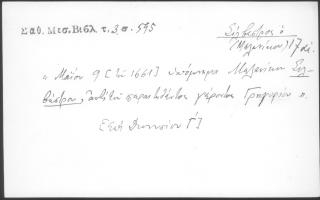 Σαθ. Μεσ. Βιβλ. τ. 3. σ. 595
Σίλβεστρος ὁ
Μελενίκου, 17 αἰ.
« Μαΐου 9 [τοῦ 1661] ὑπόμνημα Μελενίκου Σιλ-
βέστρου, ἀντὶ τοῦ παραιτηθέντος γέροντος Γρηγορίου ».
[Ἐπὶ Διονυσίου Γ']